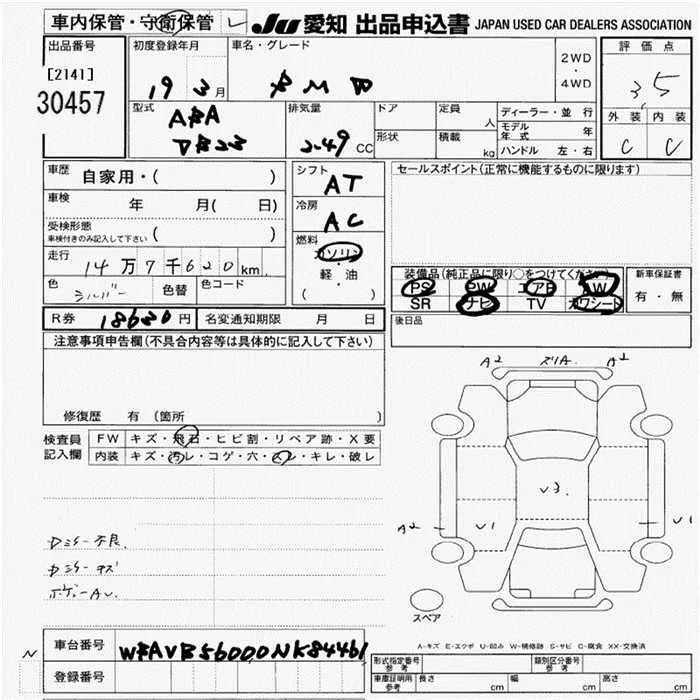 車内保管・守衛保管 レ JU 愛知 出品申込書 JAPAN USED CAR DEALERS ASSOCIATION
出品番号
[2141]
30457
初度登録年月
19 3月
車名・グレード
BMW
2WD
・
4WD
評価点
3.5
外装 内装
C C
型式
ABA
排気量
2.49 CC
ドア
形状
定員 人
積載 kg
ディーラー・並行
モデル年式 年
ハンドル 左・右
車歴 自家用・( )
車検 年 月( 日)
受検形態
車検付きのみ記入して下さい ( )
走行 14万7千620km
色 シルバー 色替 色コード
シフト
AT
冷房
AC
燃料
ガソリン
・
軽・油
・
( )
セールスポイント(正常に機能するものに限ります)
装備品(純正品に限り○をつけてください)
PS PW エアB AW
SR ナビ TV カワシート
新車保証書
有・無
後日品
R券 18680円 名変通知期限 月 日
注意事項申告欄(不具合内容等は具体的に記入して下さい)
修復歴 有 (箇所 )
検査員
記入欄
FW キズ・飛石・ヒビ割・リペア跡・X要
内装 キズ・汚レ・コゲ・穴・スレ・キレ・破レ
Dミラー不良
Dミラーキズ
A2 スリA A2
V3
A2 U1 U1
スペア
A-キズ E-エクボ U-凹み W-補修跡 S-サビ C-腐食 XX-交換済
N
車台番号 WBAVB56000NK84461
登録番号
型式指定番号 参考
類別区分番号 参考
車庫証明用 参考 長さ cm 幅 cm 高さ cm